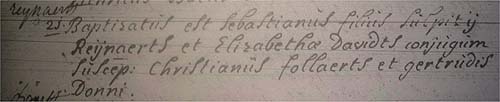 reynaert
25. Baptizatus est Sebastianus filius Sulpitij
Reijnaerts et Elizabethæ Davidts conjugum
Suscep: Christianus follaerts et gertrudis
Donni.